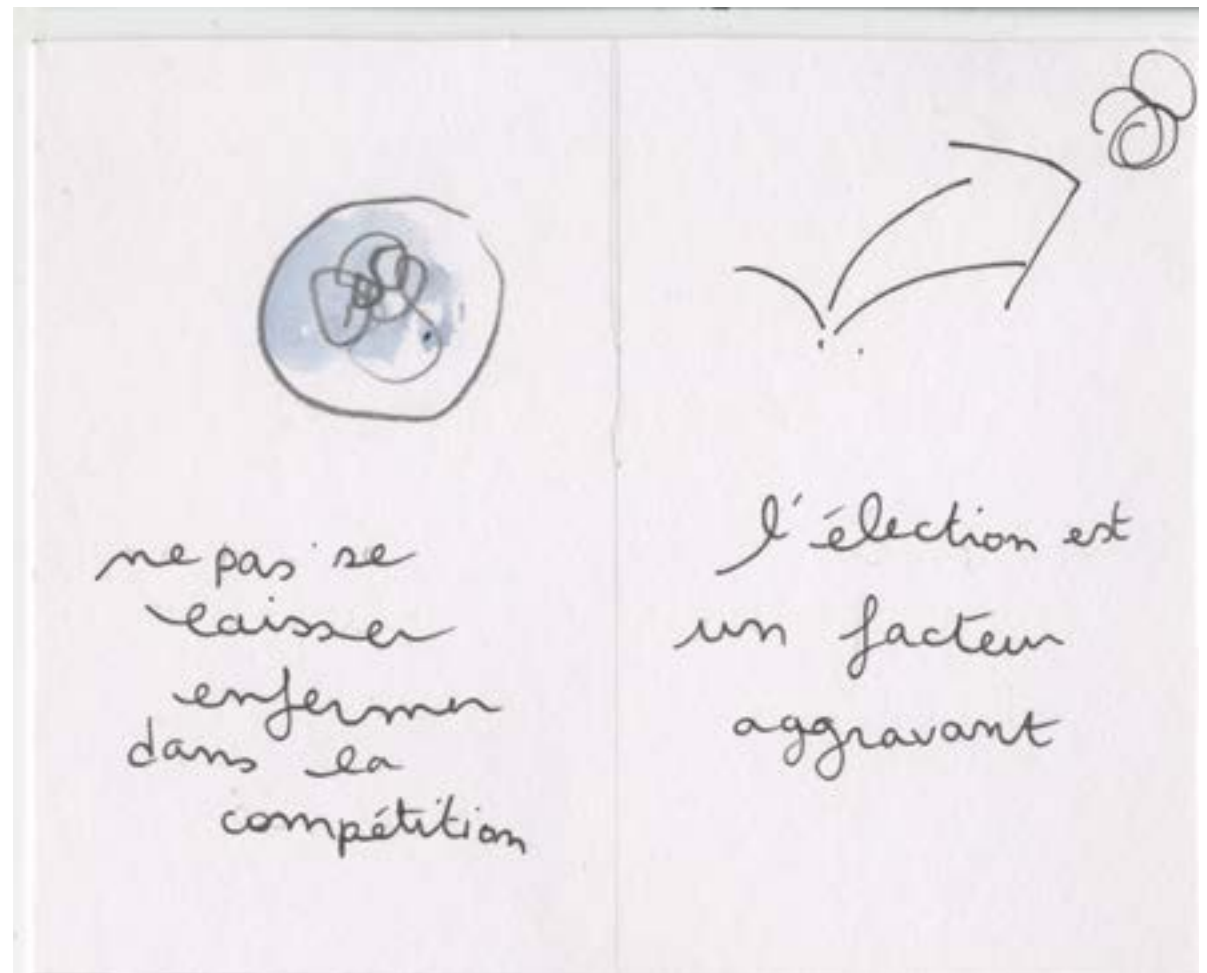 ne pas se
laisser
enfermer
dans la
compétition
l'élection est
un facteur
aggravant